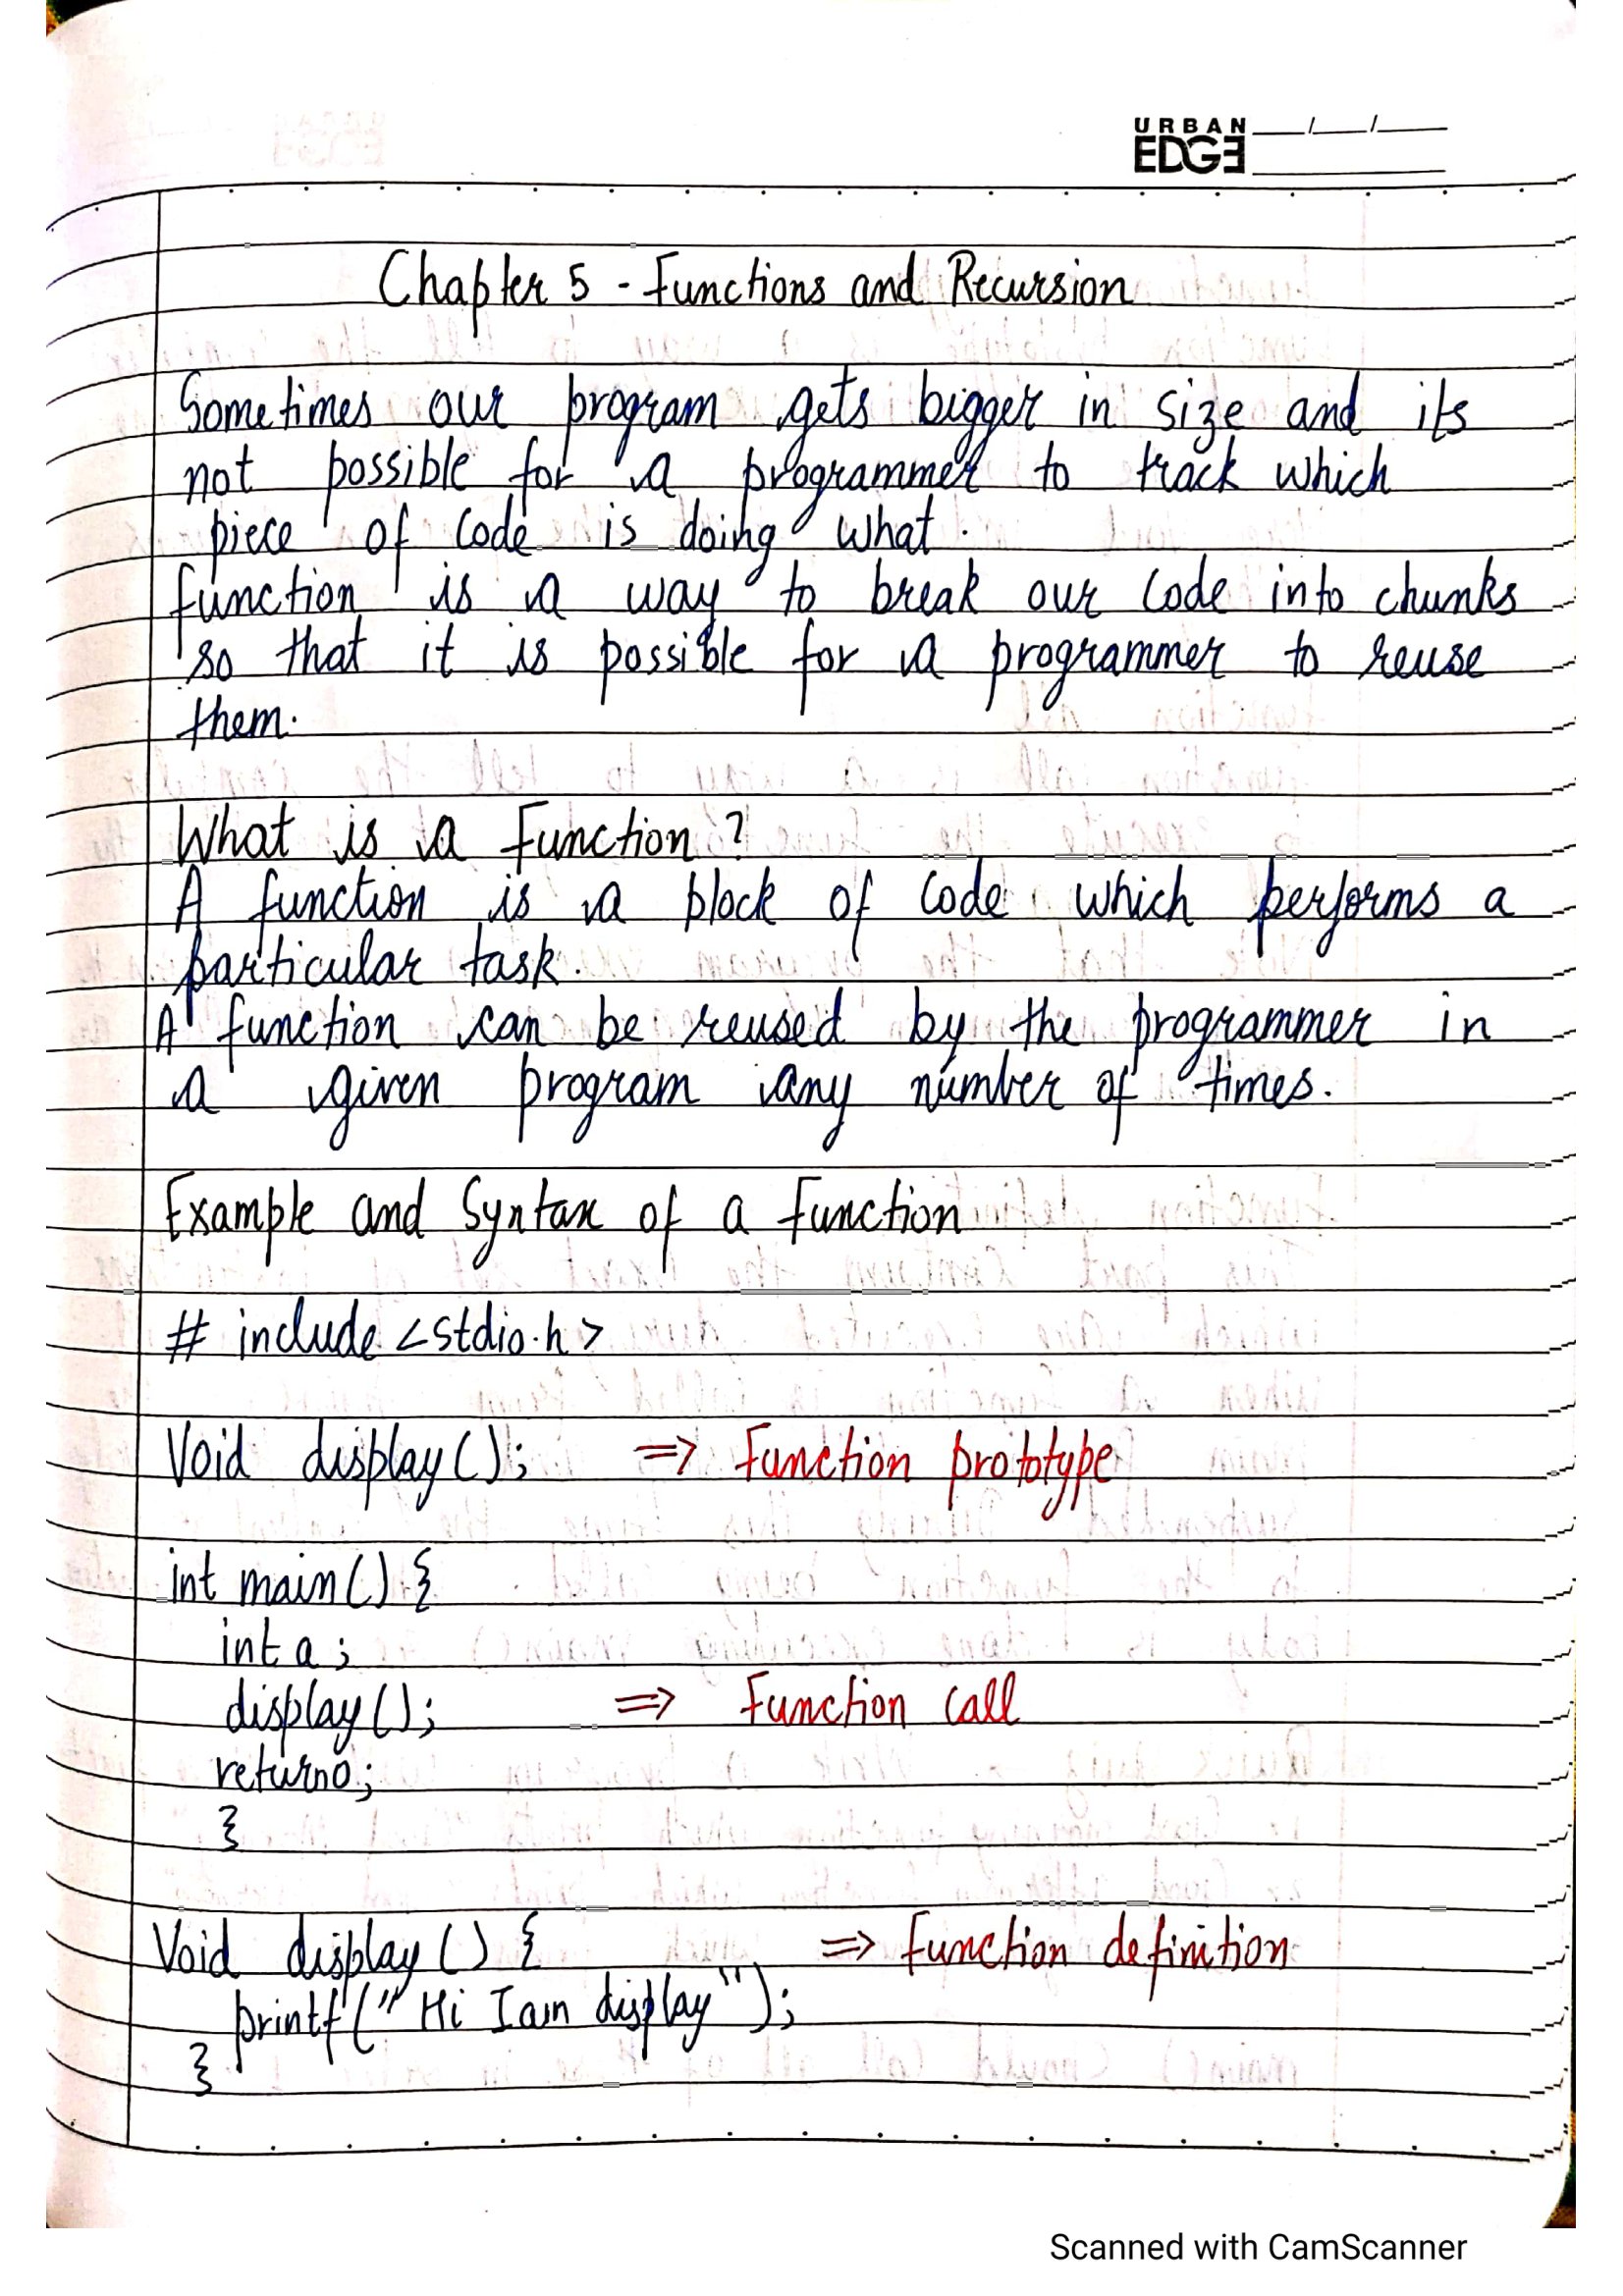 URBAN
EDGE
Chapter 5 - Functions and Recursion
Sometimes our program gets bigger in size and its
not possible for a programmer to track which
piece of code is doing what.
function is a way to break our code into chunks
so that it is possible for a programmer to reuse
them.
What is a Function ?
A function is a block of code which performs a
particular task.
A function can be reused by the programmer in
a given program any number of times.
Example and Syntax of a Function
# include <stdio.h>
Void display(); => Function prototype
int main() {
int a;
display(); => Function call
return0;
}
Void display () { => Function definition
printf(" Hi I am display");
}
Scanned with CamScanner